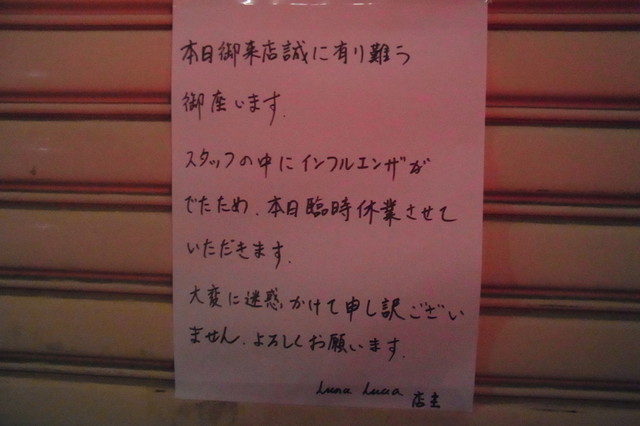 本日御来店誠に有り難う
御座います.
スタッフの中にインフルエンザが
でたため、本日臨時休業させて
いただきます.
大変に迷惑かけて申し訳ござい
ません、よろしくお願います.
Luna Luca 店主